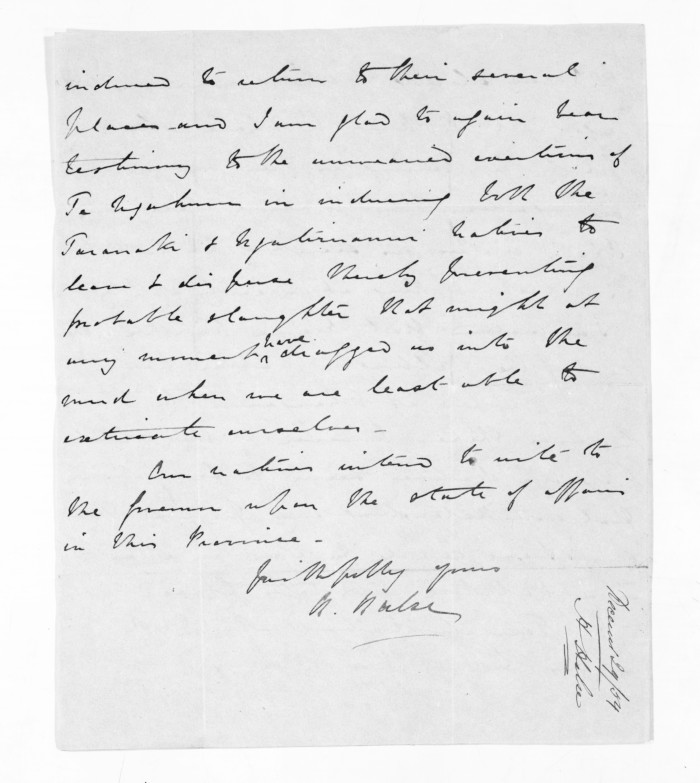 induced to return to their several
places and I am glad to again bear
testimony to the unwearied exertions of
Te Ngahuru in inducing both the
Taranaki & Ngatiruanui natives to
leave & disperse thereby preventing
probable slaughter that might at
any moment have dragged us into the
mud when we are least able to
extricate ourselves -
Our natives intend to write to
the Governor upon the state of affairs
in this Province -
Faithfully yours
H. Halse
29/54
H Halse